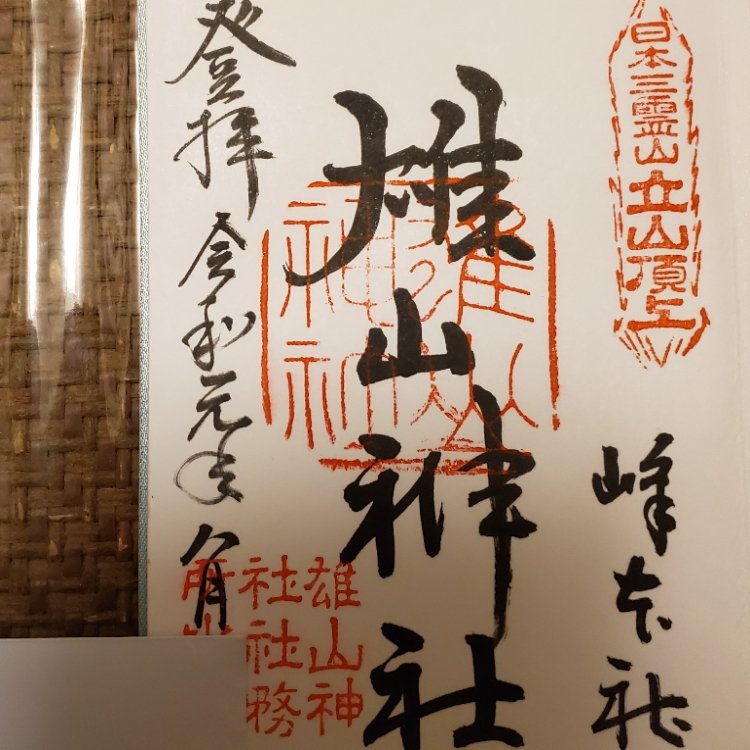 日本三霊山立山頂上
峰本社
雄山神社
雄山
神社
雄山神
社社務
所
登拝 令和元年八月